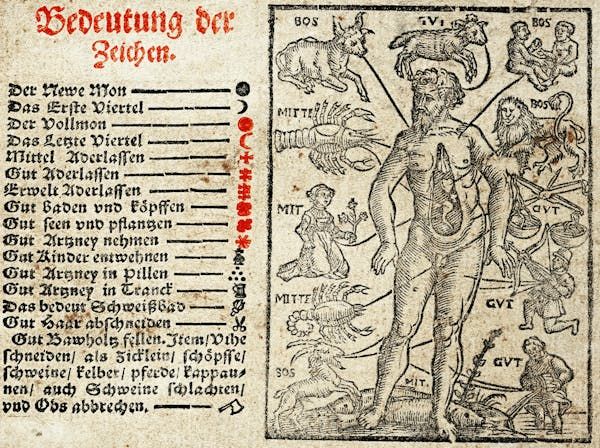 Bedeutung der
Zeichen.
Der Newe Mon
Das Erste Viertel
Der Vollmon
Das Letzte Viertel
Mittel Aderlassen
Gut Aderlassen
Erwelt Aderlassen
Gut baden vnd köpffen
Gut seen vnd pflantzen
Gut Artzney nehmen
Gut Kinder entwehnen
Gut Artzney in Pillen
Gut Artzney in Tranck
Das bedeut Schweißbad
Gut Haar abschneiden
Gut Bawholtz fellen. Item/Vihe
schneiden/ als zicklein/ schöpffe/
schweine/ kelber/ pferde/ kappau-
nen/ auch Schweine schlachten/
vnd Obs abbrechen.
BOS
GVT
BOS
MITTE
BOS
MIT.
GVT
MITTE
GVT
BOS
MIT.
GVT